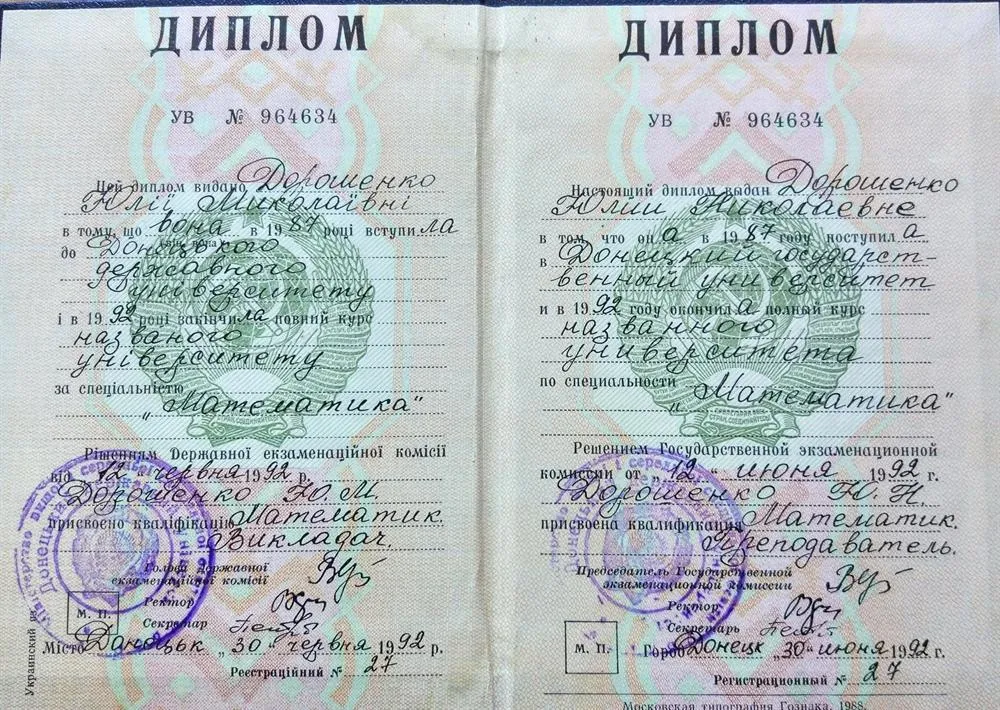 ДИПЛОМ
УВ № 964634
Цей диплом видано Дорошенко
Юлії Миколаївні
в тому, що вона в 1987 році вступила
до Донецького
державного
університету
і в 1992 році закінчила повний курс
названого
університету
за спеціальністю
„Математика"
Рішенням Державної екзаменаційної комісії
від „12" червня 1992 р.
Дорошенко Ю. М.
присвоєно кваліфікацію Математик.
Викладач.
Голова Державної
екзаменаційної комісії
Ректор
М. П.
Секретар
Місто Донецьк „30" червня 1992 р.
Реєстраційний № 27
Украинский яз.
ДИПЛОМ
УВ № 964634
Настоящий диплом выдан Дорошенко
Юлии Николаевне
в том, что она в 1987 году поступила
в Донецкий государст-
венный университет
и в 1992 году окончила полный курс
названного
университета
по специальности
„Математика"
Решением Государственной экзаменационной
комиссии от „12" июня 1992 г.
Дорошенко Ю. Н.
присвоена квалификация Математик.
Преподаватель.
Председатель Государственной
экзаменационной комиссии
Ректор
Секретарь
М. П.
Город Донецк „30" июня 1992 г.
Регистрационный № 27
Московская типография Гознака. 1988.